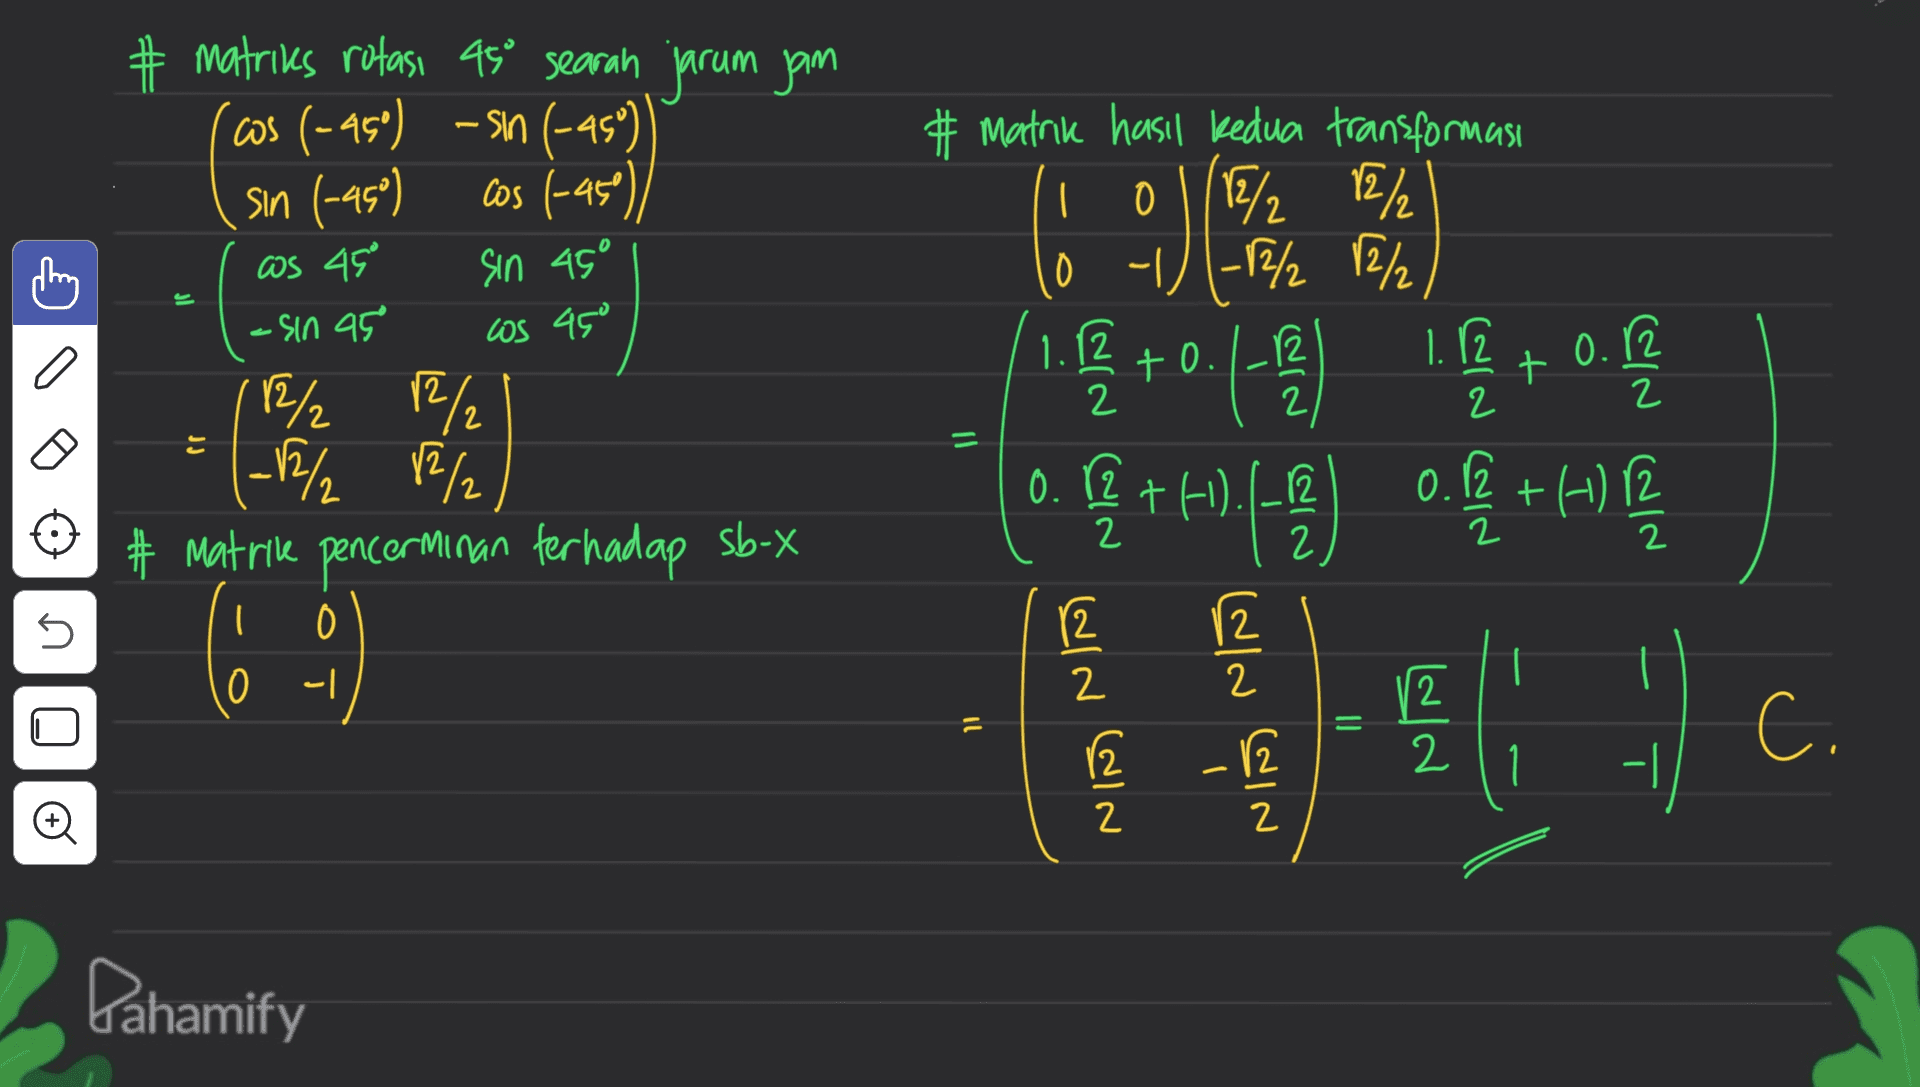 # Matriks rotasi 45° searah jarum jam
( cos (-45°) - sin (-45°) )
( sin (-45°) cos (-45°) )
= ( cos 45° sin 45° )
( - sin 45° cos 45° )
= ( √2/2 √2/2 )
( -√2/2 √2/2 )
# Matrik pencerminan terhadap sb-x
( 1 0 )
( 0 -1 )
# Matrik hasil kedua transformasi
( 1 0 ) ( √2/2 √2/2 )
( 0 -1 ) ( -√2/2 √2/2 )
= ( 1. √2/2 + 0. (-√2/2) 1. √2/2 + 0. √2/2 )
( 0. √2/2 + (-1). (-√2/2) 0. √2/2 + (-1) √2/2 )
= ( √2/2 √2/2 ) = √2/2 ( 1 1 ) C.
( √2/2 -√2/2 ) ( 1 -1 )
Pahamify